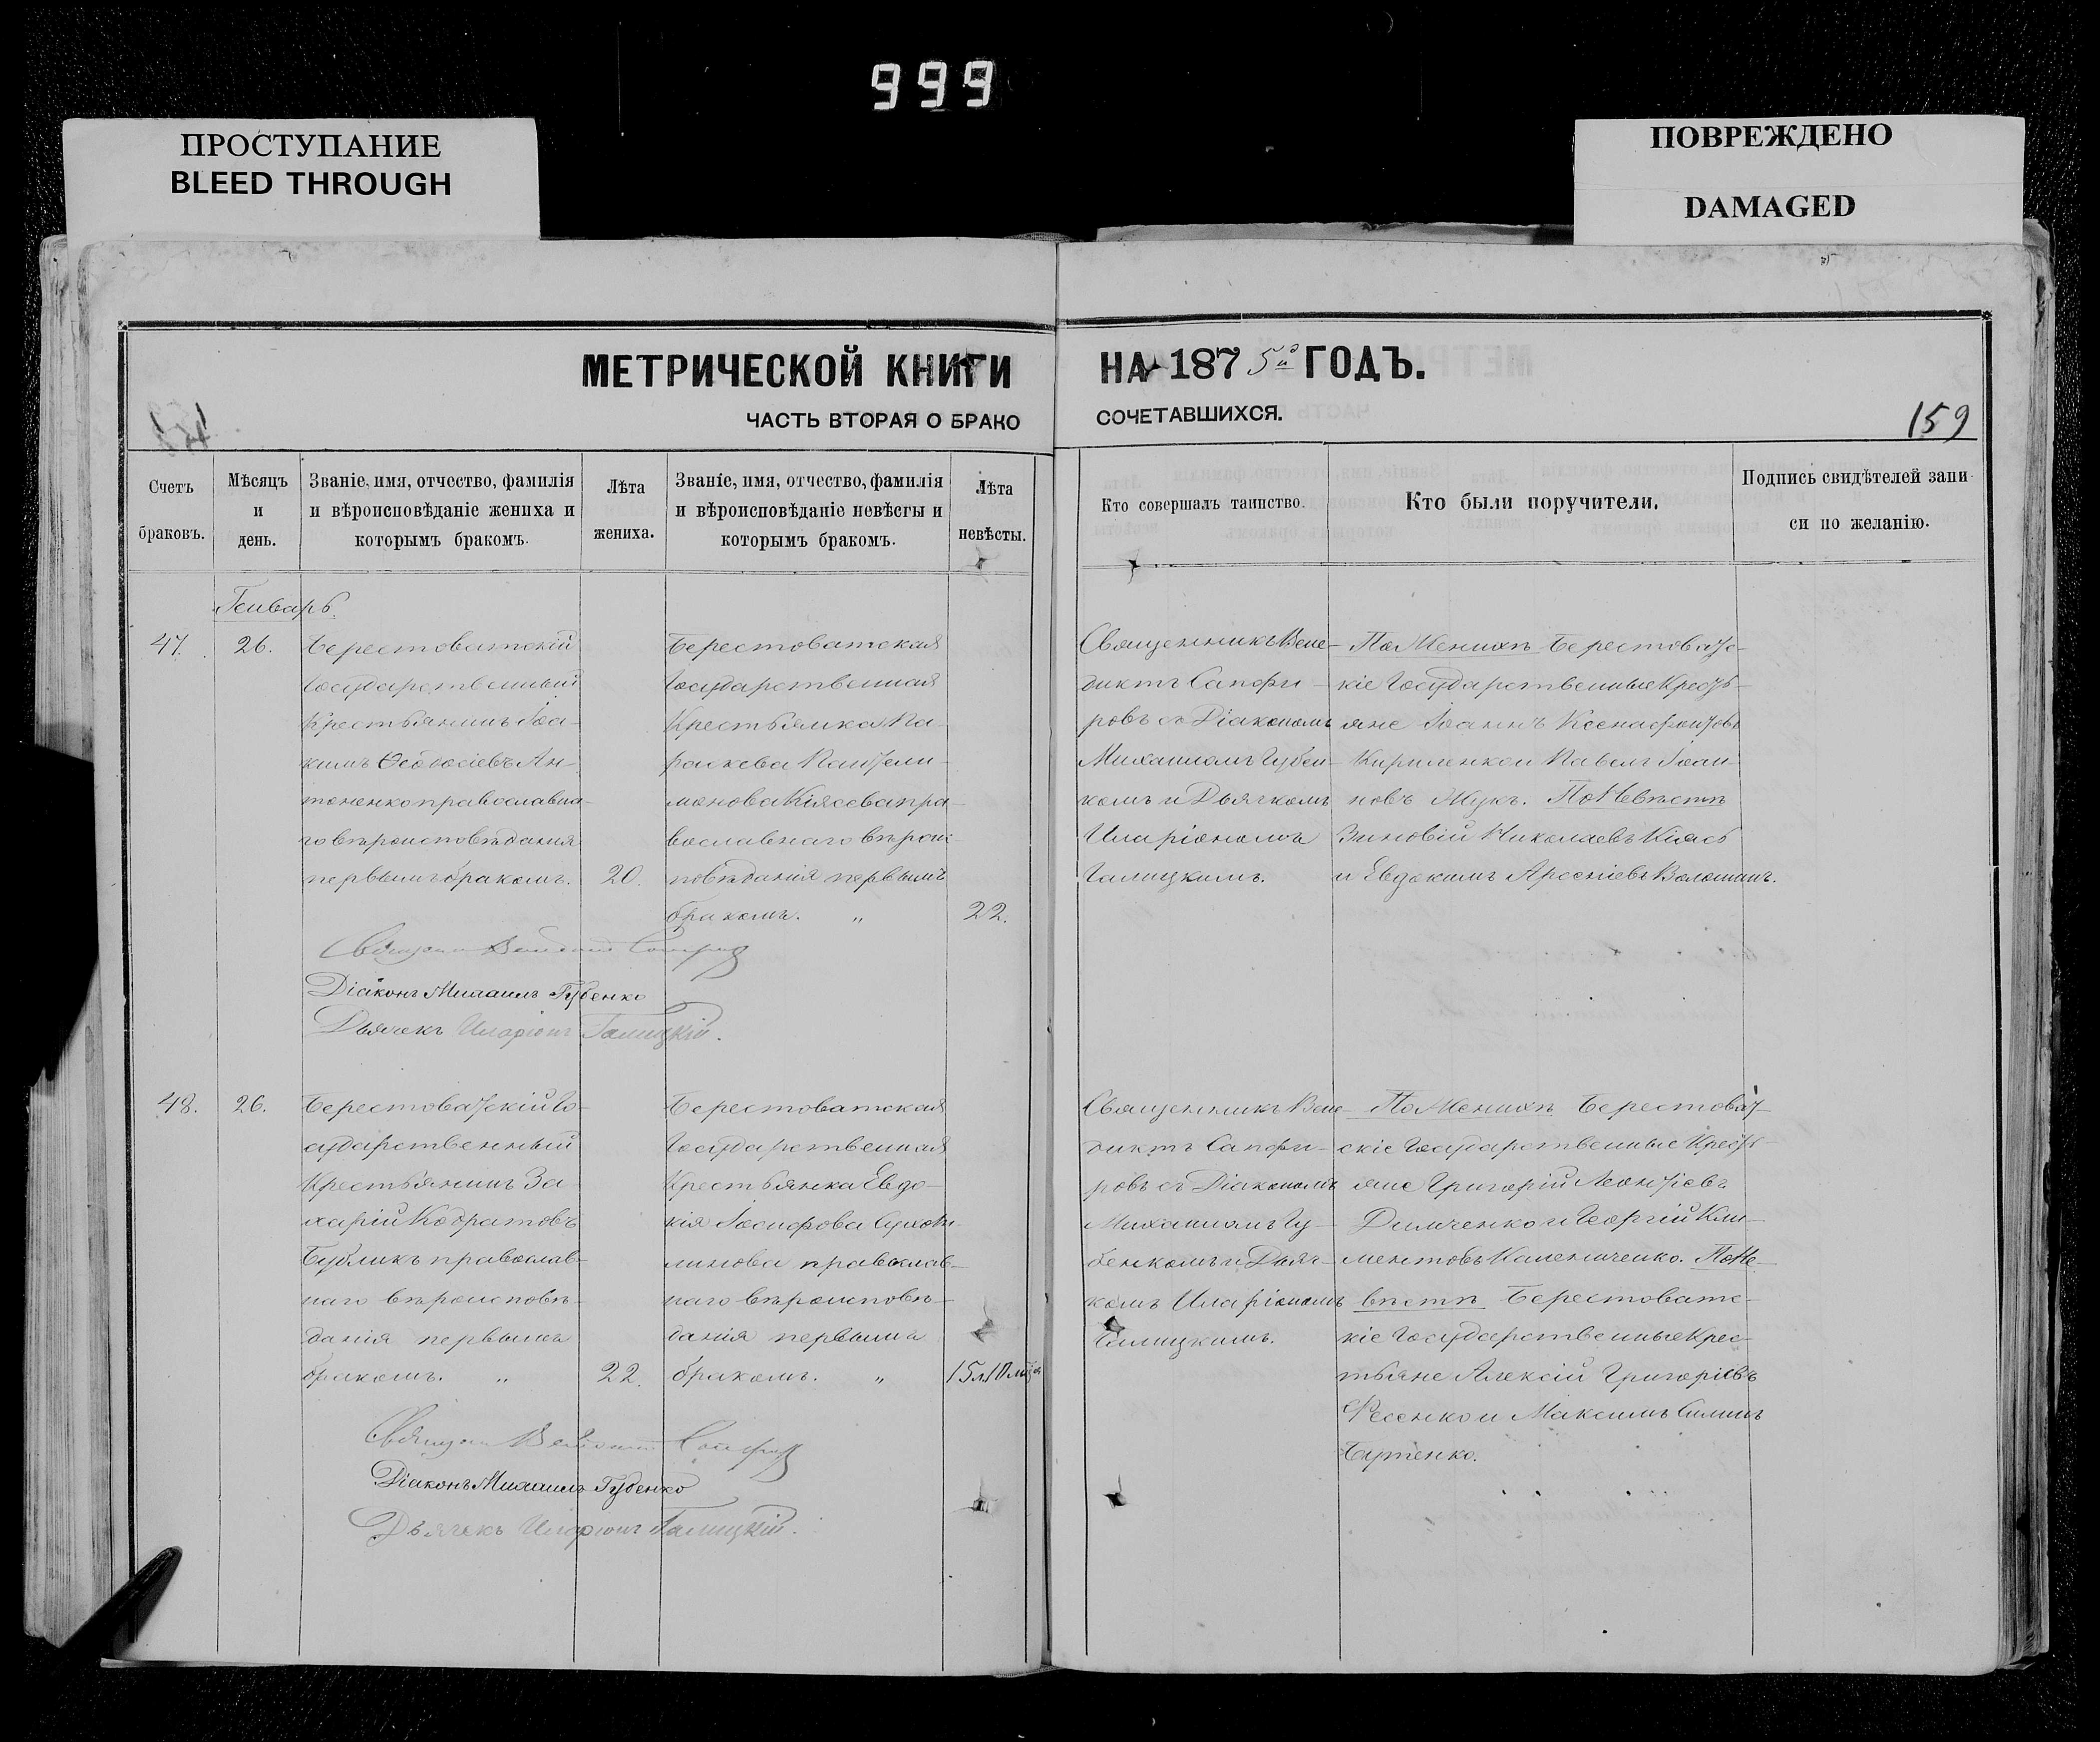 999
ПРОСТУПАНИЕ
BLEED THROUGH
ПОВРЕЖДЕНО
DAMAGED
МЕТРИЧЕСКОЙ КНИГИ
НА 1875й ГОДЪ.
ЧАСТЬ ВТОРАЯ О БРАКО
СОЧЕТАВШИХСЯ.
159
Счетъ
браковъ.
Мѣсяцъ
и
день.
Званіе, имя, отчество, фамилія
и вѣроисповѣданіе жениха и
которымъ бракомъ.
Лѣта
жениха.
Званіе, имя, отчество, фамилія
и вѣроисповѣданіе невѣсты и
которымъ бракомъ.
Лѣта
невѣсты.
Кто совершалъ таинство.
Кто были поручители.
Подпись свидѣтелей запи-
си по желанію.
Генварь
47.
26.
Берестоватскій
Государственный
Крестьянинъ Іоа-
кимъ Ѳеодосіевъ Ан-
тоненко православна-
го вѣроисповѣданія
первымъ бракомъ.
20.
Берестоватская
Государственная
Крестьянка Па-
раскева Пантели-
монова Кіясова пра-
вославнаго вѣроис-
повѣданія первымъ
бракомъ. "
22.
Священникъ Вене-
диктъ Сапфи-
ровъ съ Діакономъ
Михаиломъ Губен-
комъ и Дьячкомъ
Иларіономъ
Галицкимъ.
По Женихѣ Берестоватс-
кіе Государственные Кресть-
яне Іоаннъ Ксенофонтовъ
Кириленко и Павелъ Іоан-
новъ Жукъ. По Невѣстѣ
Зиновій Николаевъ Кіясъ
и Евдокимъ Арсеніевъ Волошинъ.
Діаконъ Михаилъ Губенко
Дьячекъ Иларіонъ Галицкій.
48.
26.
Берестоватскій Го-
сударственный
Крестьянинъ За-
харій Кодратовъ
Бубликъ православ-
наго вѣроисповѣ-
данія первымъ
бракомъ. "
22.
Берестоватская
Государственная
Крестьянка Евдо-
кія Іосифова
линова православ-
наго вѣроисповѣ-
данія первымъ
бракомъ. "
Священникъ Вене-
диктъ Сапфи-
ровъ съ Діакономъ
Михаиломъ Гу-
бенкомъ и Дьяч-
комъ Иларіономъ
Галицкимъ.
По Женихѣ Берестоват-
скіе Государственные Кресть-
яне Григорій Леонтіевъ
Димченко и Георгій Кли-
ментовъ Калениченко. По Не-
вѣстѣ Берестоватс-
кіе Государственные Крес-
тьяне Алексій Григоріевъ
Фесенко и Максимъ Силинъ
Бутенко.
Діаконъ Михаилъ Губенко
Дьячекъ Иларіонъ Галицкій.